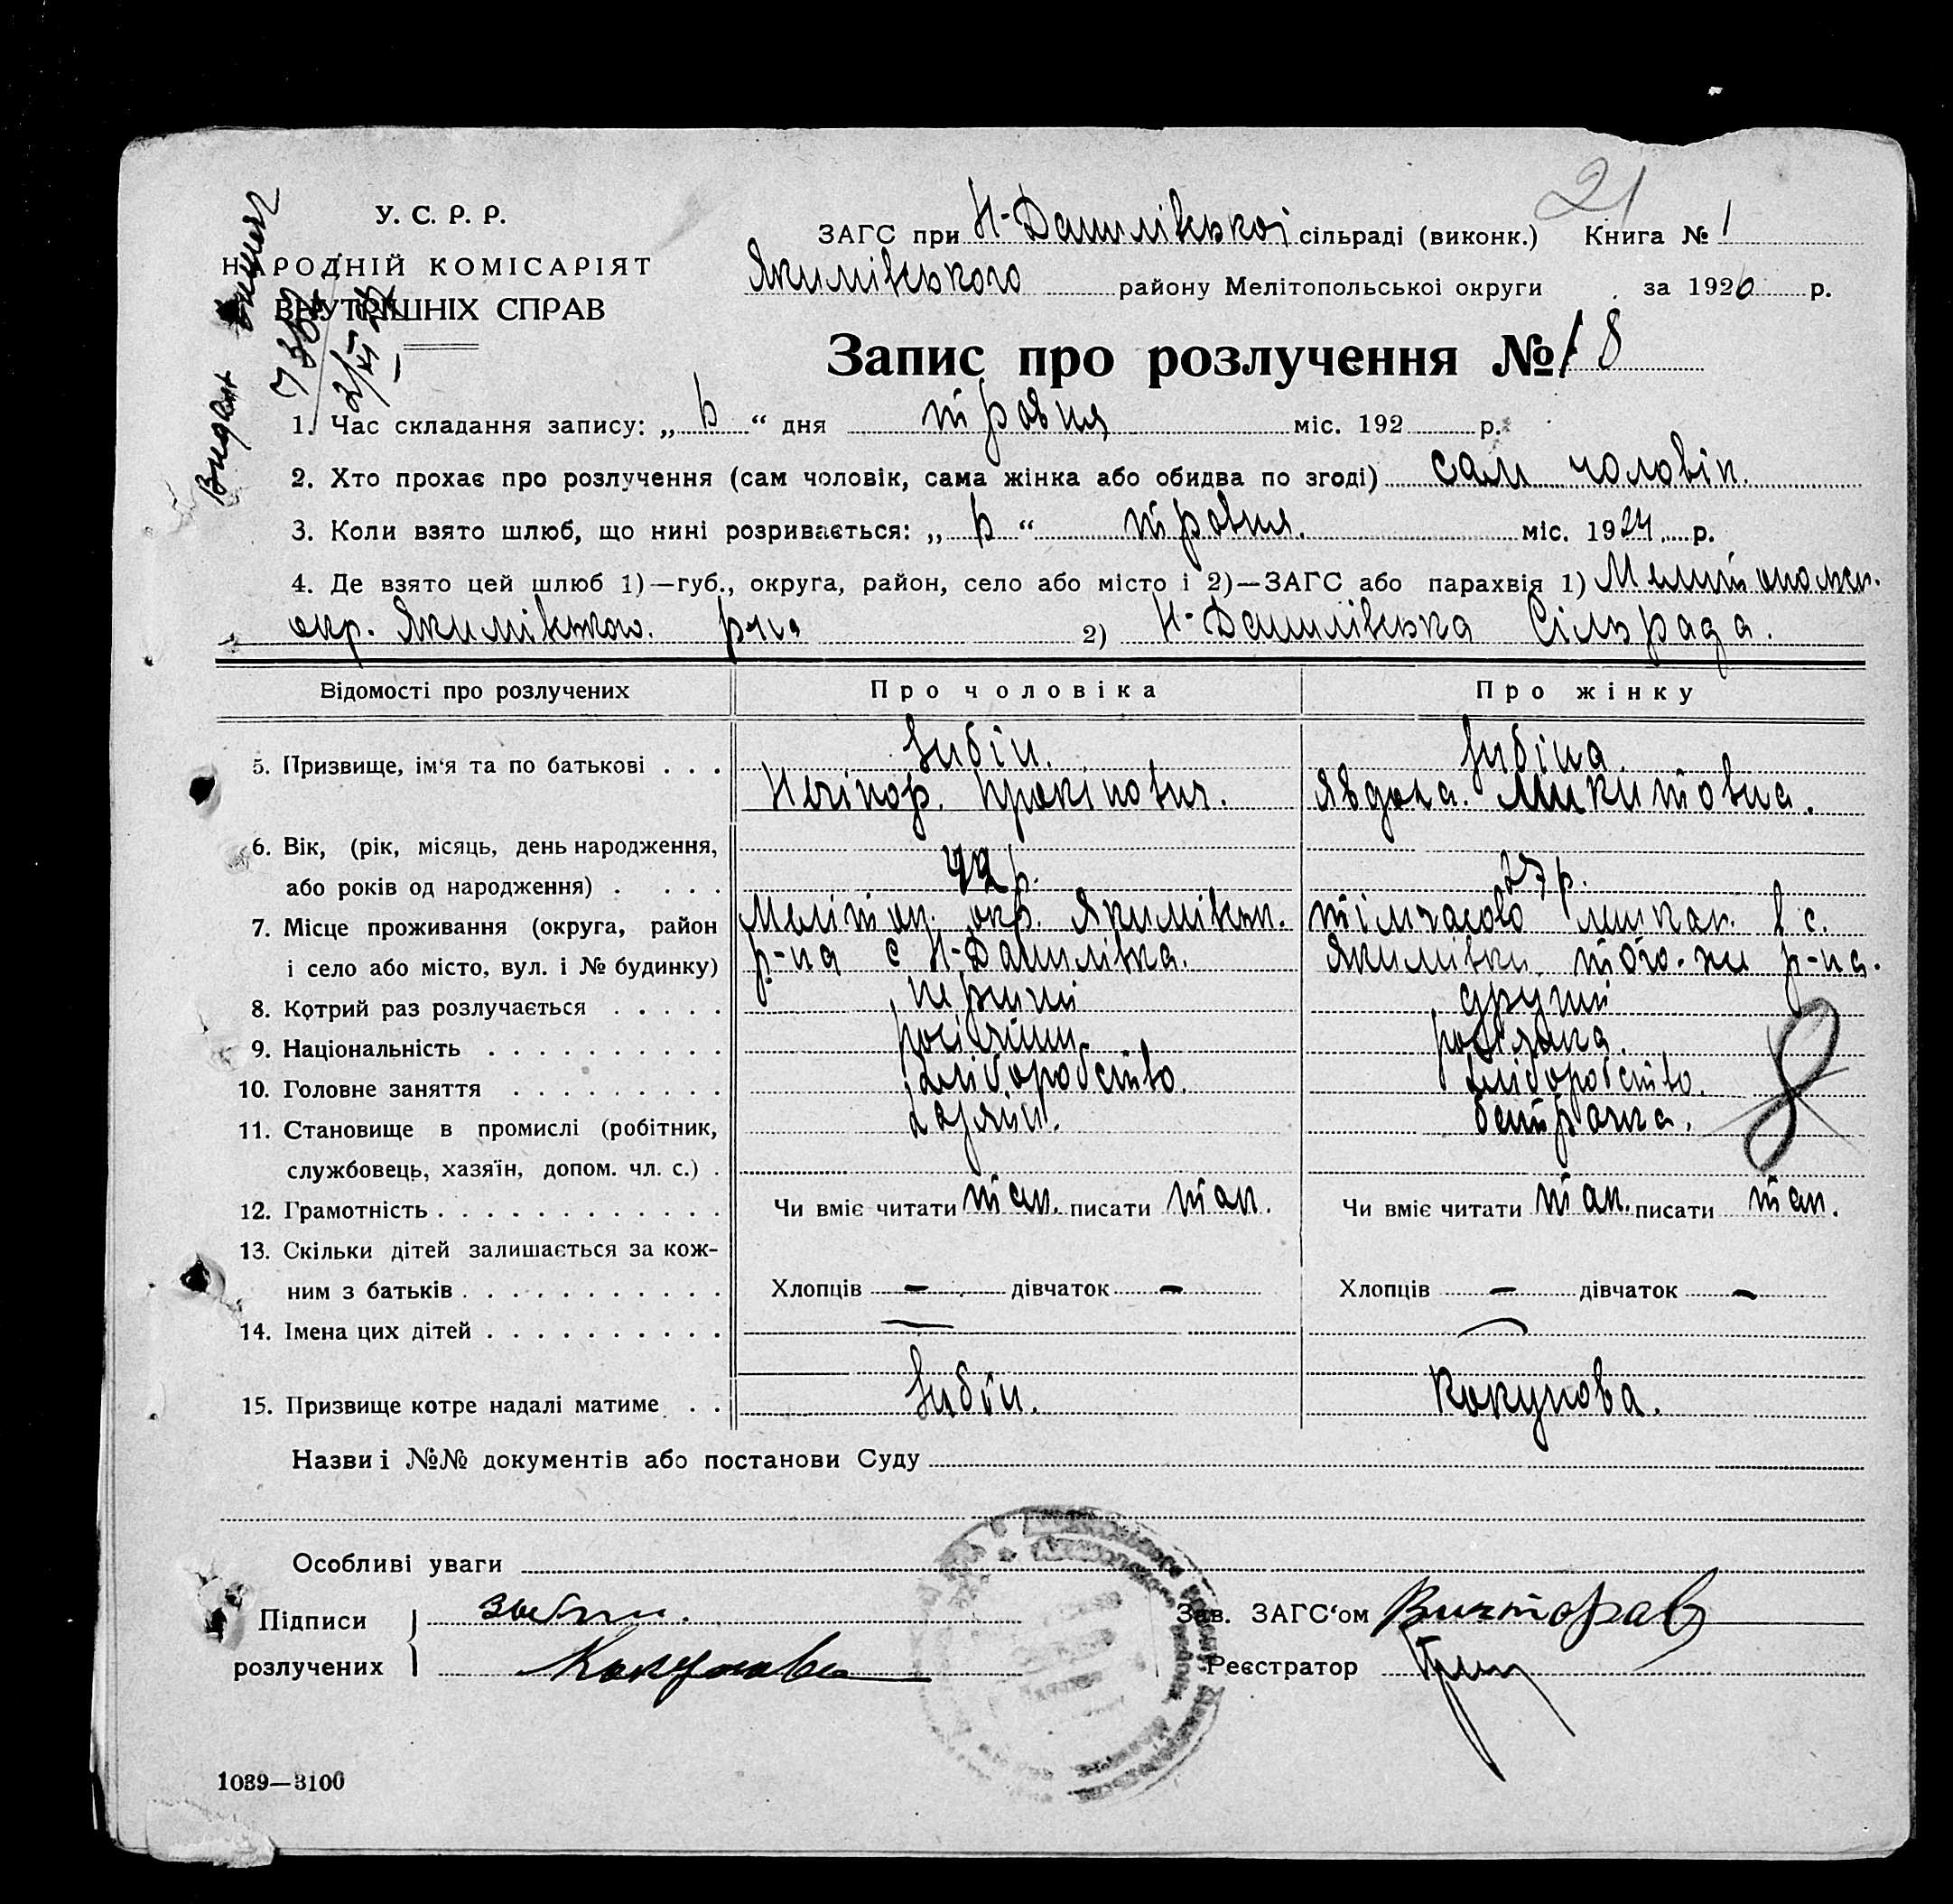 21
У. С. Р. Р.
НАРОДНІЙ КОМІСАРІЯТ
ВНУТРІШНІХ СПРАВ
ЗАГС при Н-Данилівській сільраді (виконк.) Книга № 1
Якимівського району Мелітопольської округи за 1926 р.
Запис про розлучення № 18
1. Час складання запису: „ “ дня травня міс. 192 р.
2. Хто прохає про розлучення (сам чоловік, сама жінка або обидва по згоді) сам чоловік.
3. Коли взято шлюб, що нині розривається: „ “ травня. міс. 1924 р.
4. Де взято цей шлюб 1)—губ., округа, район, село або місто і 2)—ЗАГС або парахвія 1) Мелитопольск.
окр. Якимівського. р-на 2) Н-Данилівська Сільрада.
Відомості про розлучених Про чоловіка Про жінку
5. Призвище, ім‘я та по батькові . . . Зибін. Зибіна.
Нечіпор. Явдоха. Микитовна.
6. Вік, (рік, місяць, день народження,
або років од народження) . . . . р. 27 р.
7. Місце проживання (округа, район Меліт оп. окр. Якимівськ. тімчасово мешкає в с.
і село або місто, вул. і № будинку) р-на с Н-Данилівка. Якимівки того-же р-на.
8. Котрий раз розлучається . . . . . перший другий
9. Національність . . . . . . . . . . росіянин. росіянка.
10. Головне заняття . . . . . . . . хліборобство. хліборобство.
11. Становище в промислі (робітник, хазяїн. батрачка.
службовець, хазяїн, допом. чл. с.) .
12. Грамотність . . . . . . . . . . . . Чи вміє читати так. писати так. Чи вміє читати так. писати так.
13. Скільки дітей залишається за кож-
ним з батьків . . . . . . . . . . . Хлопців — дівчаток — Хлопців — дівчаток —
14. Імена цих дітей . . . . . . . . . . — —
15. Призвище котре надалі матиме . . Зибін. Кокунова.
Назви і №№ документів або постанови Суду
Особливі уваги
Підписи Зав. ЗАГС‘ом
розлучених Кокунова Реєстратор
1039—3100